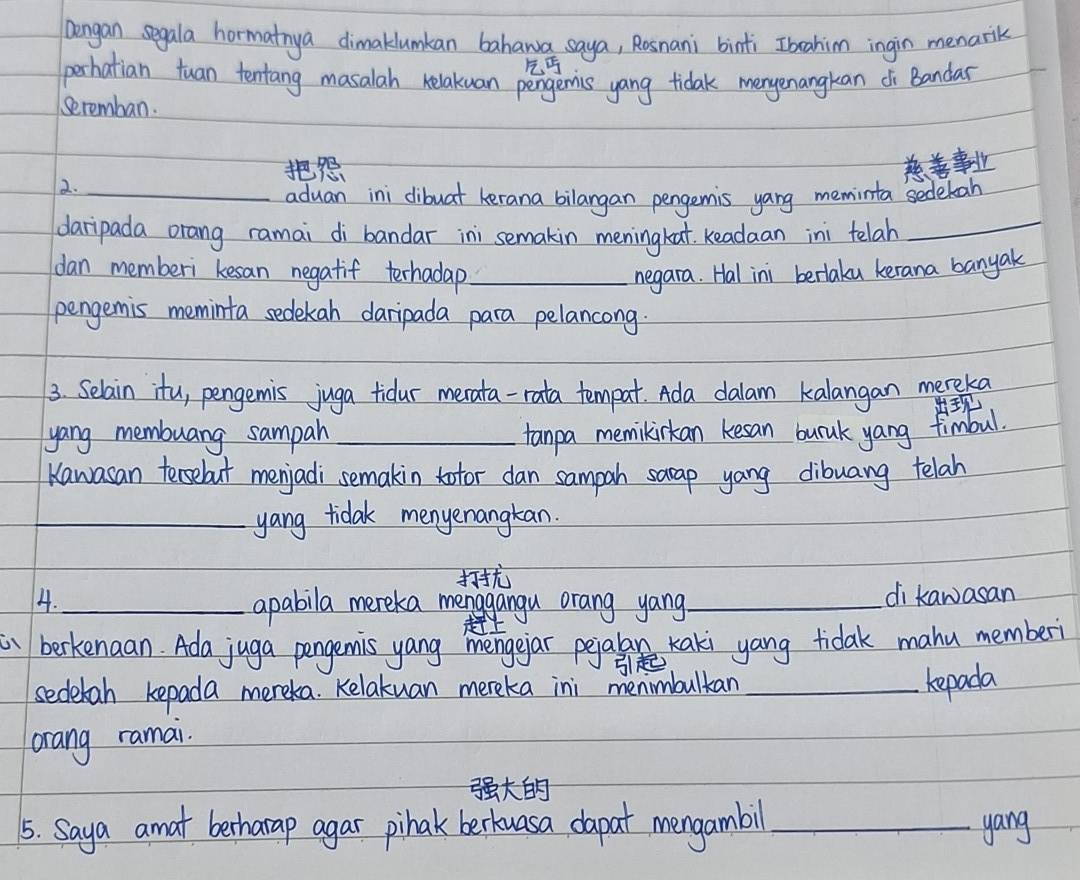 Dengan segala hormatnya dimaklumkan bahawa saya, Rosnani binti Ibrahim ingin menarik
乞丐
perhatian tuan tentang masalah kelakuan pengemis yang tidak menyenangkan di Bandar
Seremban.
抱怨 慈善事业
2. ____________ aduan ini dibuat kerana bilangan pengemis yang meminta sedekah
daripada orang ramai di bandar ini semakin meningkat. Keadaan ini telah ________
dan memberi kesan negatif terhadap __________ negara. Hal ini berlaku kerana banyak
pengemis meminta sedekah daripada para pelancong.
3. Selain itu, pengemis juga tidur merata-rata tempat. Ada dalam kalangan mereka
出现
yang membuang sampah ____________ tanpa memikirkan kesan buruk yang timbul.
Kawasan tersebut menjadi semakin kotor dan sampah sarap yang dibuang telah
______________ yang tidak menyenangkan.
打扰
4. ____________ apabila mereka mengganggu orang yang ____________ di kawasan
赶上
berkenaan. Ada juga pengemis yang mengejar pejalan kaki yang tidak mahu memberi
引起
sedekah kepada mereka. Kelakuan mereka ini menimbulkan ____________ kepada
orang ramai.
强大的
5. Saya amat berharap agar pihak berkuasa dapat mengambil ____________ yang